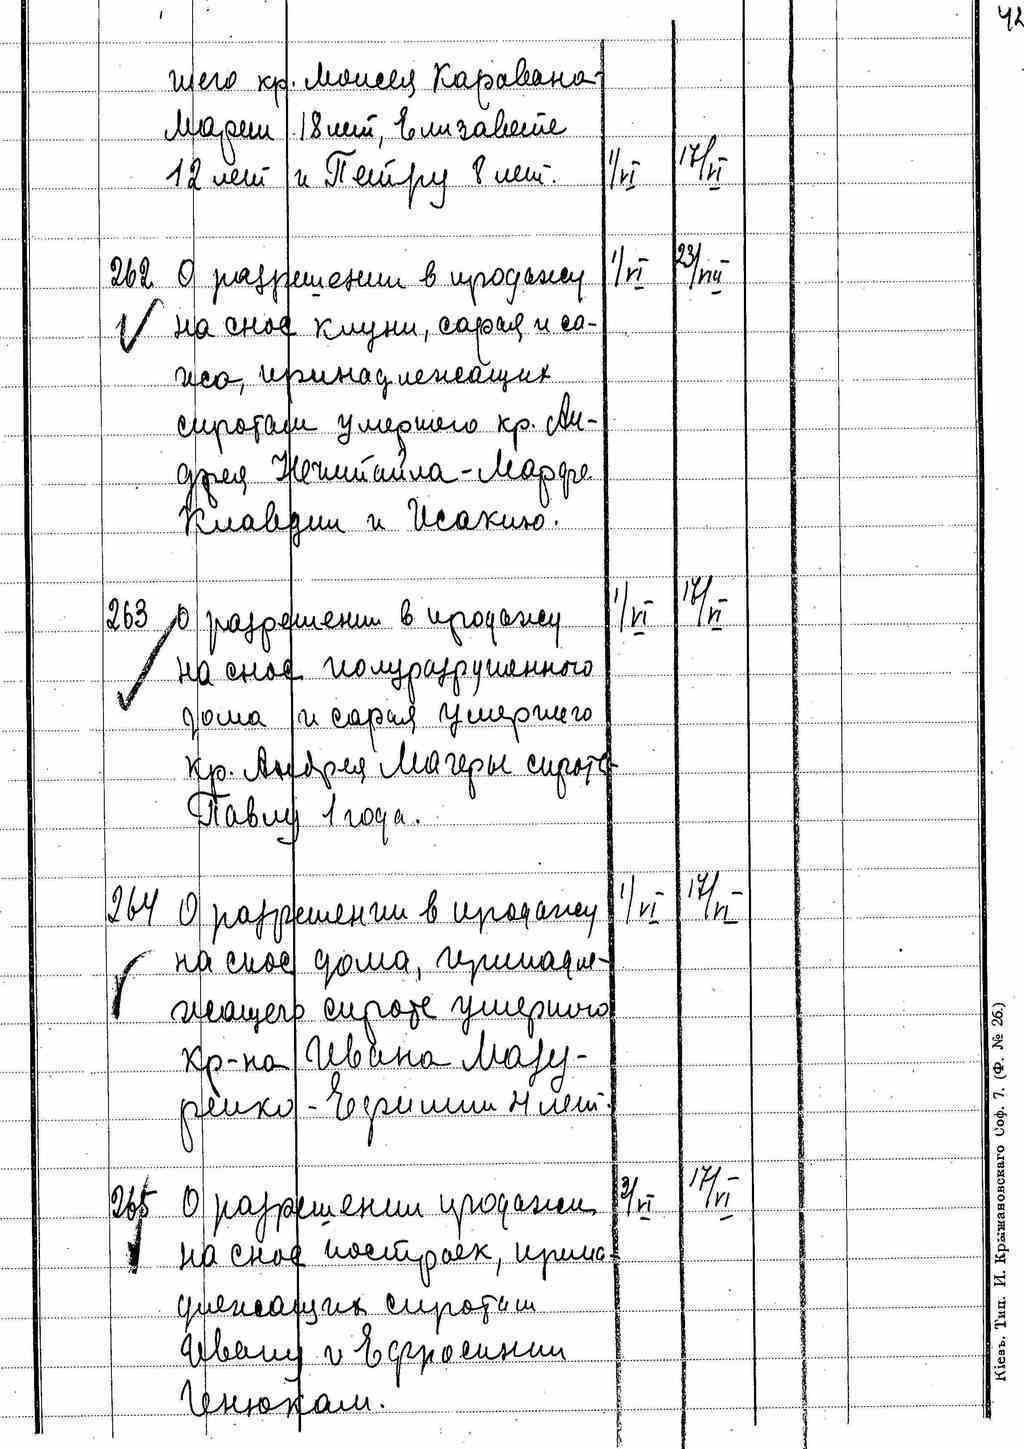 42
шего кр. Моисея Каравана-
Марии 18 лет, Елизавете
12 лет и Петру 8 лет. 1/VI 17/VI
262 О разрешении в продажу 1/VI 23/VIII
на снос клуни, сарая и са-
жа, принадлежащих
сиротам умершего кр. Ан-
дрея Нечитайла - Марфе
Клавдии и Исакию.
263 О разрешении в продажу 1/VI 17/VI
на снос полуразрушенного
дома и сарая умершего
кр. Андрея Магеры сироте
Павлу 1 года.
264 О разрешении в продажу 1/VI 17/VI
на снос дома, принадле-
жащего сироте умершого
кр-на Ивана Мазу-
ренко - Ефимии 4 лет.
265 О разрешении продажи 3/VI 17/VI
на снос построек, прина-
длежащих сиротам
Ивану и Ефросинии
Генюкам.
Кіевъ. Тип. И. Крыжановскаго Соф. 7. (Ф. № 26)